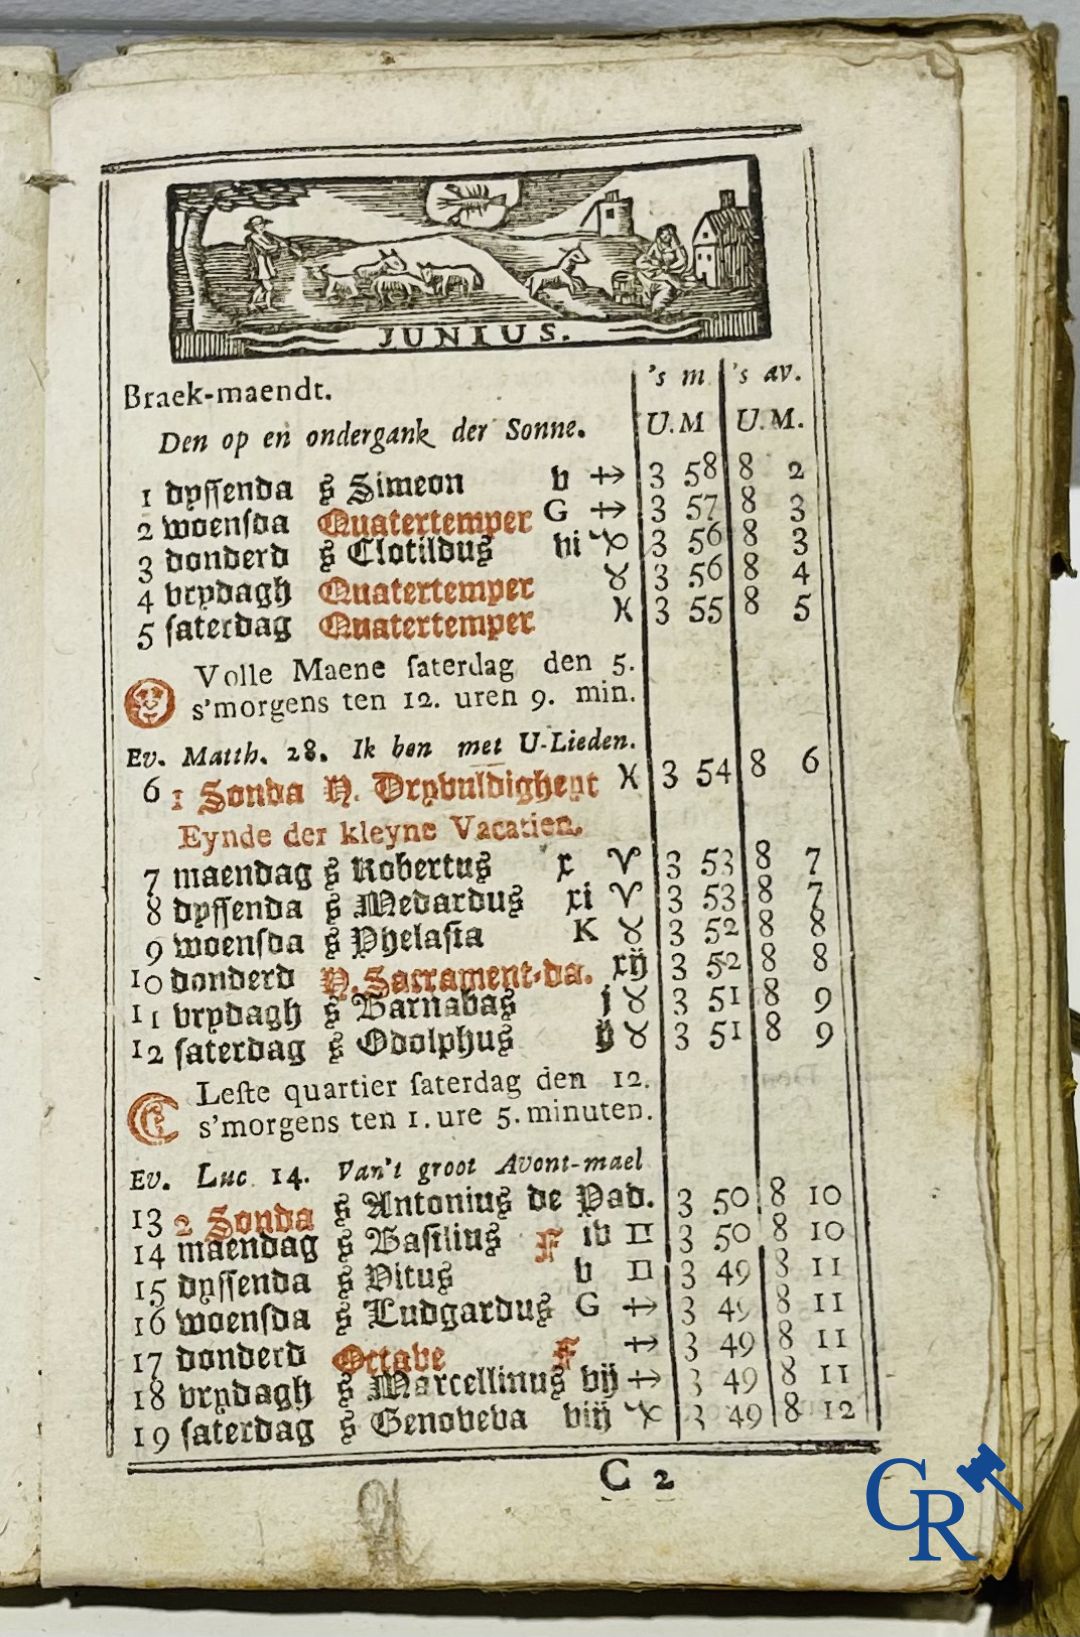 JUNIUS.
Braek-maendt. 's m 's av.
Den op en ondergank der Sonne. U.M U.M.
1 dyſſenda s Simeon v ♐ 3 58 8 2
2 woenſda Quatertemper G ♐ 3 57 8 3
3 donderd s Clotildus vi ♑ 3 56 8 3
4 vrydagh Quatertemper ♉ 3 56 8 4
5 ſaterdag Quatertemper ♓ 3 55 8 5
Volle Maene ſaterdag den 5.
s'morgens ten 12. uren 9. min.
Ev. Matth. 28. Ik ben met U-Lieden.
6 1 Sonda H. Dryvuldigheyt ♓ 3 54 8 6
Eynde der kleyne Vacatien.
7 maendag s Robertus x ♈ 3 53 8 7
8 dyſſenda s Medardus xi ♈ 3 53 8 7
9 woenſda s Phelaſia K ♉ 3 52 8 8
10 donderd H. Sacrament-da. xij 3 52 8 8
11 vrydagh s Barnabas j ♉ 3 51 8 9
12 ſaterdag s Odolphus ij ♉ 3 51 8 9
Leſte quartier ſaterdag den 12.
s'morgens ten 1. ure 5. minuten.
Ev. Luc 14. Van't groot Avont-mael
13 2 Sonda s Antonius de Pad. 3 50 8 10
14 maendag s Baſilius F iv ♊ 3 50 8 10
15 dyſſenda s Vitus v ♊ 3 49 8 11
16 woenſda s Ludgardus G ♐ 3 49 8 11
17 donderd Octave F ♐ 3 49 8 11
18 vrydagh s Marcellinus vij ♐ 3 49 8 11
19 ſaterdag s Genoveva viij ♑ 3 49 8 12
C 2
CR